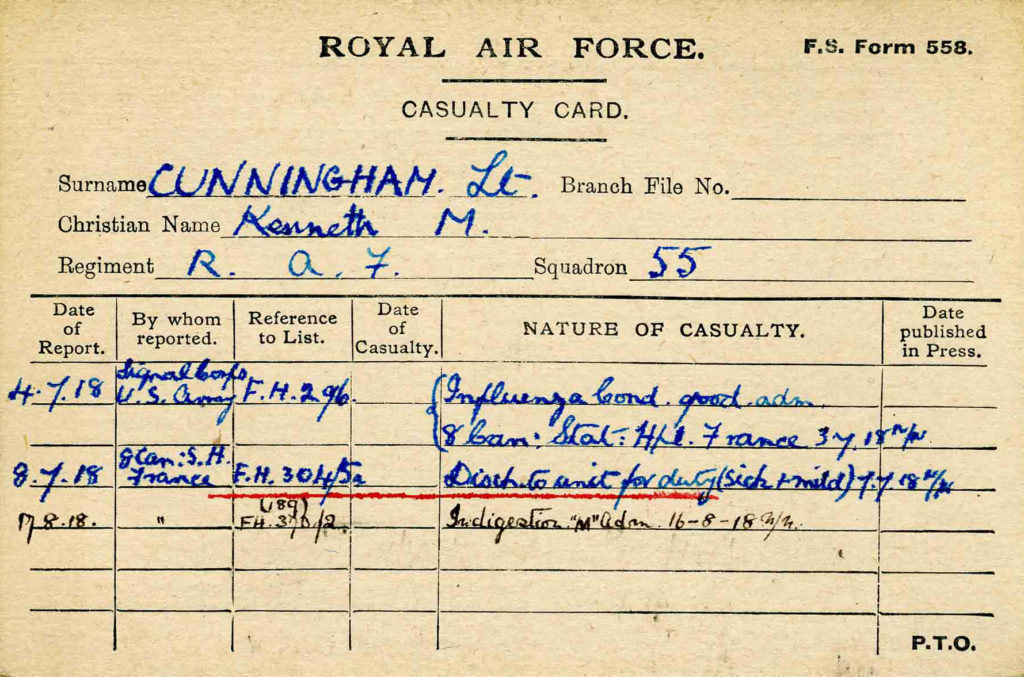 ROYAL AIR FORCE. F.S. Form 558.
CASUALTY CARD.
Surname CUNNINGHAM. Lt. Branch File No.
Christian Name Kenneth M.
Regiment R. A. F. Squadron 55
Date of Report. By whom reported. Reference to List. Date of Casualty. NATURE OF CASUALTY. Date published in Press.
4.7.18 Signal Corps U.S. Army F.H. 296. Influenza Cond. good. adm
8 Can: Stat: H/l. France 3.7.18
8.7.18 8 Can: S.H. France F.H. 304/5a Disch. to unit for duty (Sick + mild) 7.7.18
17.8.18. " (189) FH. 370/2. Indigestion "M" Adm. 16-8-18
P.T.O.